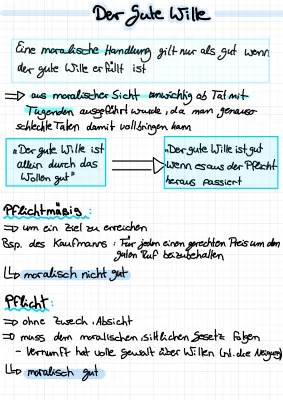 Der Gute Wille
Eine moralische Handlung gilt nur als gut wenn
der gute Wille erfüllt ist
⇒ aus moralischer Sicht unwichtig ob Tat mit
Tugenden ausgeführt wurde, da man genauso
schlechte Taten damit vollbringen kann
„Der gute Wille ist
allein durch das
Wollen gut"
⇒
„Der gute Wille ist gut
wenn es aus der Pflicht
heraus passiert
Pflichtmäßig:
⇒ um ein Ziel zu erreichen
Bsp. des Kaufmanns: Für jeden einen gerechten Preis um den
guten Ruf beizubehalten
↳ moralisch nicht gut
Pflicht:
⇒ ohne Zweck, Absicht
⇒ muss dem moralischen, sittlichen Gesetz folgen
- Vernunft hat volle Gewalt über Willen (nicht die Neigung)
↳ moralisch gut